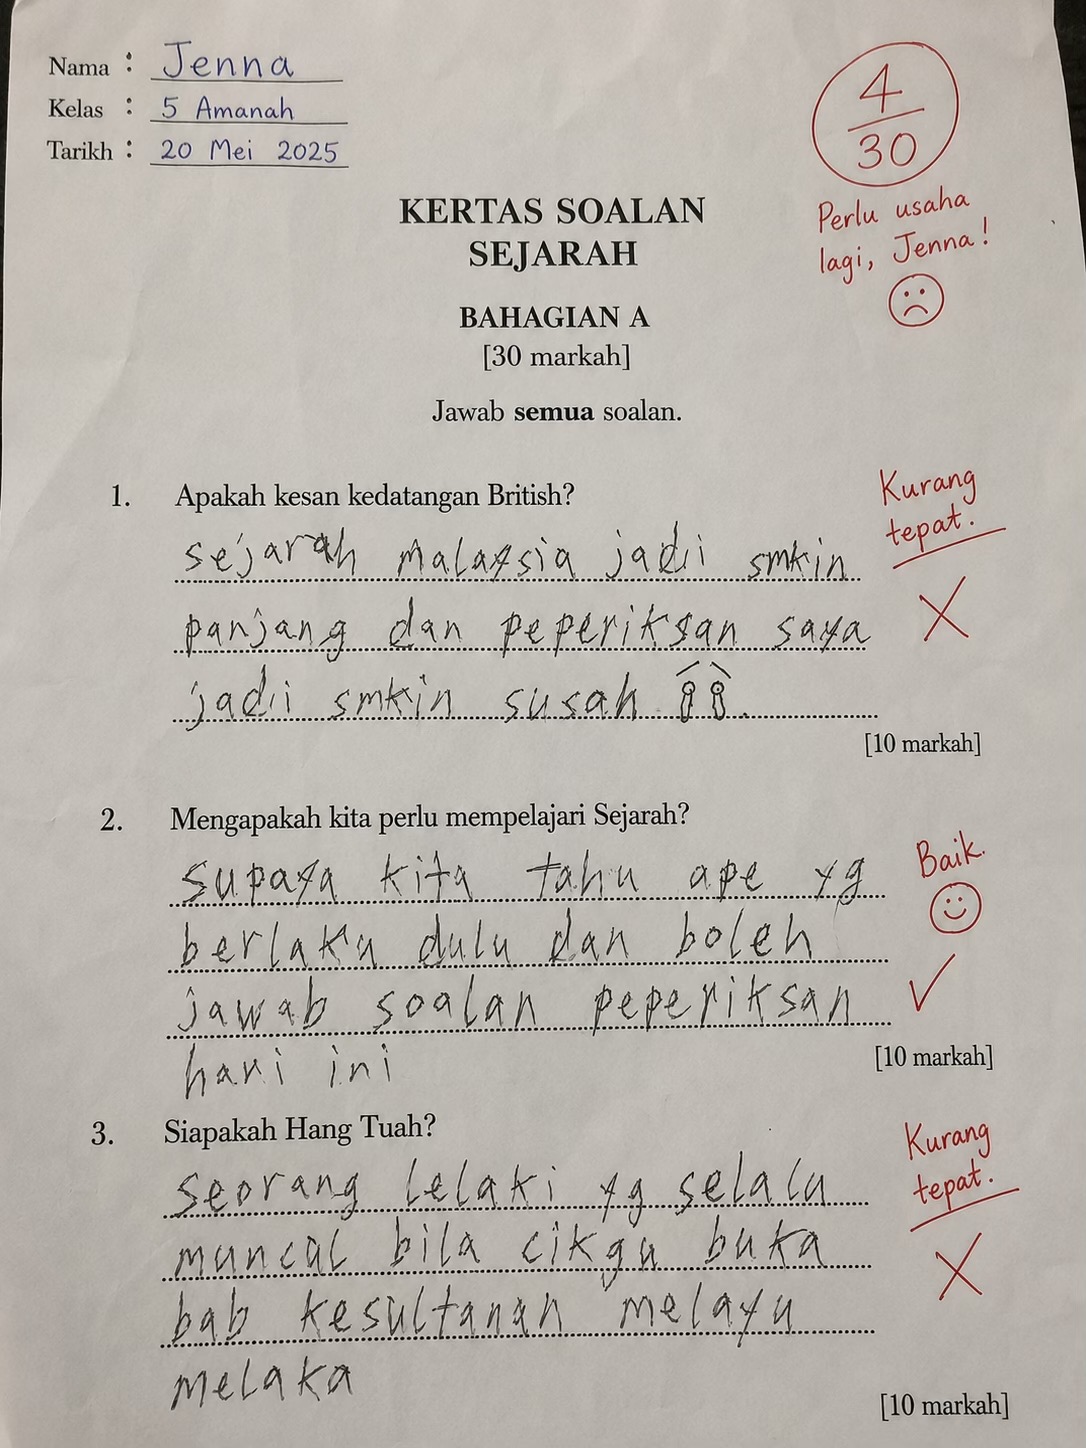 Nama : Jenna
Kelas : 5 Amanah
Tarikh : 20 Mei 2025
4
30
Perlu usaha
lagi, Jenna!
KERTAS SOALAN
SEJARAH
BAHAGIAN A
[30 markah]
Jawab semua soalan.
1. Apakah kesan kedatangan British?
sejarah malaysia jadi smkin
panjang dan peperiksan saya
jadi smkin susah
[10 markah]
Kurang
tepat.
2. Mengapakah kita perlu mempelajari Sejarah?
supaya kita tahu ape yg
berlaku dulu dan boleh
jawab soalan peperiksan
hari ini
[10 markah]
Baik.
3. Siapakah Hang Tuah?
seorang lelaki yg selalu
muncul bila cikgu buka
bab kesultanan melayu
melaka
[10 markah]
Kurang
tepat.